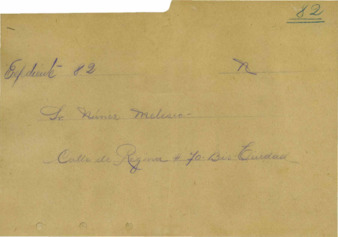 82
Expediente 82 N
Sr. Núnez Melesio
Calle de Regina # 70 Bis Ciudad